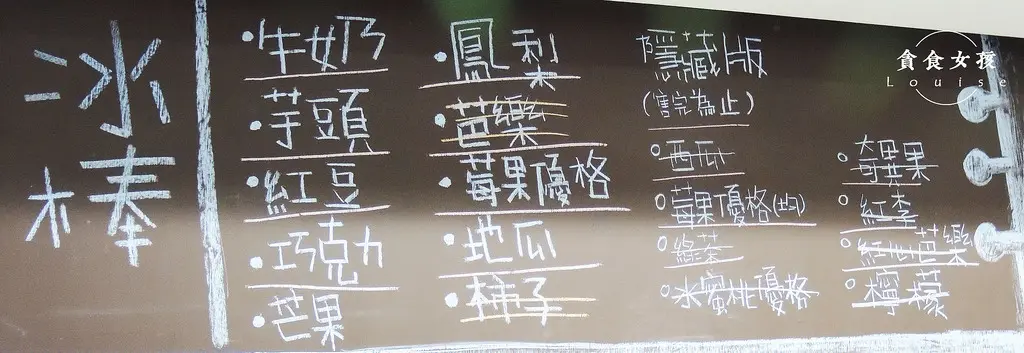 冰棒
·牛奶
·芋頭
·紅豆
·巧克力
·芒果
·鳳梨
·芭樂
·莓果優格
·地瓜
·柿子
隱藏版
(售完為止)
西瓜
莓果優格(
綠茶
水蜜桃優格
奇異果
紅李
紅心芭樂
檸檬
貪食女孩
Louise